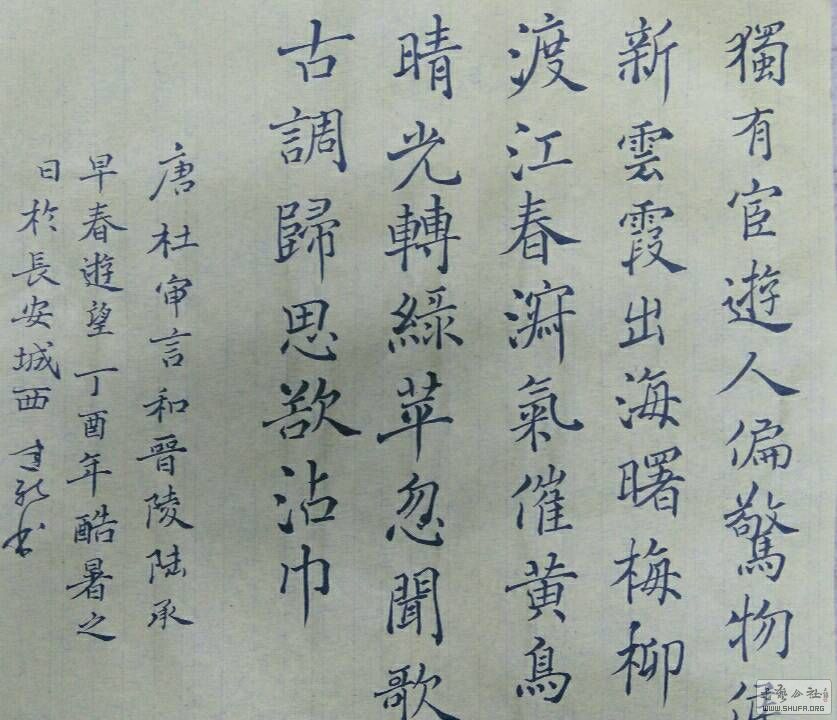 獨有宦遊人偏驚物候
新雲霞出海曙梅柳
渡江春淑氣催黃鳥
晴光轉綠苹忽聞歌
古調歸思欲沾巾
唐杜审言和晉陵陸承
早春遊望丁酉年酷暑之
日於長安城西书
WWW.SHUFA.ORG